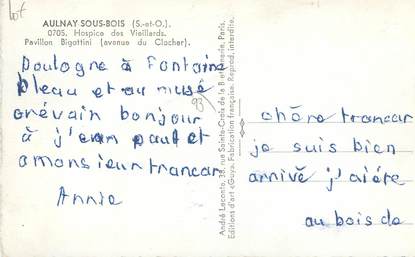 lot
AULNAY-SOUS-BOIS (S.-et-O.).
0705. Hospice des Vieillards.
Pavillon Bigottini (avenue du Clocher).
chère francar
je suis bien
arrivé j'aiéte
au bois de
boulogne à Fontaine
bleau et au musé
grévain bonjour
à j'ean paul et
a monsieur francar
Annie
93
André Leconte, 38, rue Sainte-Croix-de-la-Bretonnerie, Paris.
Editions d'art «Guy». Fabrication française. Reprod. interdite.